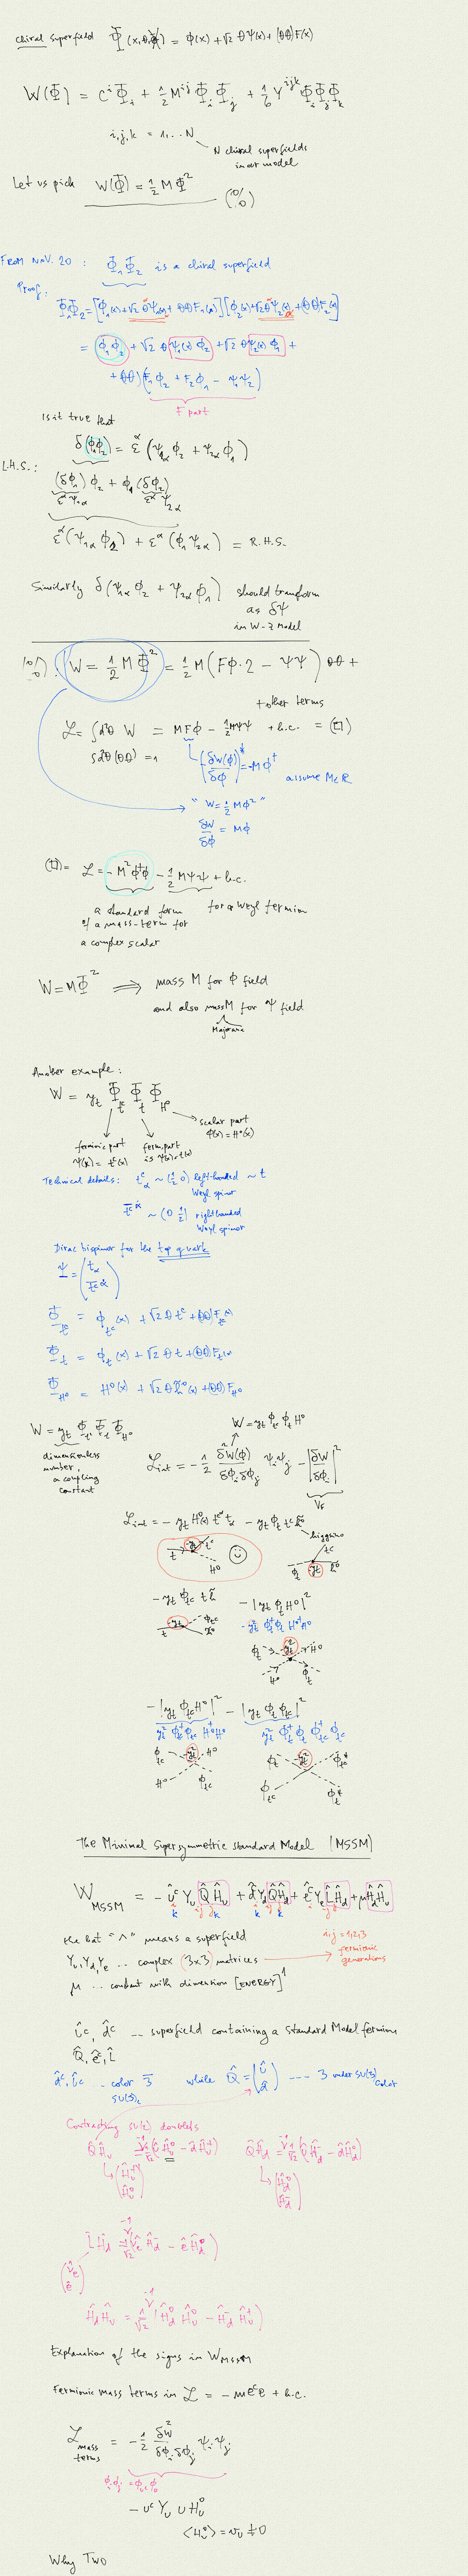 Chiral superfield Φ(x,θ,θ̄) = φ(x) + √2 θψ(x) + (θθ)F(x)
W(Φ) = CⁱΦᵢ + ½ Mⁱʲ ΦᵢΦⱼ + 1/6 Yⁱʲᵏ ΦᵢΦⱼΦₖ
i,j,k = 1,...N
N chiral superfields
in our model
Let us pick W(Φ) = ½ M Φ²
FROM NOV. 20 : Φ₁Φ₂ is a chiral superfield
Proof:
Φ₁Φ₂ = [φ₁(x)+√2 θψ₁(x)+ θθ F₁(x)][φ₂(x)+√2 θψ₂(x)+(θθ)F₂(x)]
= φ₁φ₂ + √2 θ ψ₁(x) φ₂ + √2 θ ψ₂(x) φ₁ +
+ (θθ)(F₁φ₂ + F₂φ₁ - ψ₁ψ₂)
F part
Is it true that
δ(φ₁φ₂) = εᵅ (ψ₁α φ₂ + ψ₂α φ₁)
L.H.S.:
(δφ₁)φ₂ + φ₁(δφ₂)
εᵅψ₁α εᵅψ₂α
εᵅ(ψ₁α φ₂) + εᵅ(φ₁ψ₂α) = R.H.S.
Similarly δ(ψ₁α φ₂ + ψ₂α φ₁) should transform
as δψ
in W-Z model
W = ½ M Φ² = ½ M (Fφ·2 - ψψ) θθ +
+ other terms
ℒ = ∫d²θ W = MFφ - ½Mψψ + h.c. = (□)
∫d²θ(θθ) = 1
(δW(φ)/δφ)* = -Mφ† assume M∈ℝ
"W = ½ Mφ²"
δW/δφ = Mφ
(□) = ℒ = -M²φ†φ - ½ Mψψ + h.c.
a standard form for a Weyl fermion
of a mass-term for
a complex scalar
W = MΦ² ⟹ mass M for φ field
and also mass M for ψ field
Majorana
Another example:
W = yₜ Φ_tᶜ Φ_t Φ_H⁰
scalar part
φ(x) = H⁰(x)
fermionic part
ψ(x) = tᶜ(x)
ferm. part
is ψ(x) = t(x)
Technical details: tᶜ_α ~ (½ 0) left-handed ~ t
Weyl spinor
t̄ᶜ^α̇ ~ (0 ½) right handed
Weyl spinor
Dirac bispinor for the top quark
Ψ = (t_α
t̄ᶜ^α̇)
Φ_tᶜ = φ_tᶜ(x) + √2 θ tᶜ + (θθ)F_tᶜ(x)
Φ_t = φ_t(x) + √2 θ t + (θθ)F_t(x)
Φ_H⁰ = H⁰(x) + √2 θ h̃⁰(x) + (θθ)F_H⁰
W = yₜ Φ_tᶜ Φ_t Φ_H⁰
W = yₜ φ_tᶜ φ_t H⁰
dimensionless
number,
a coupling
constant
ℒint = -½ δ²W(φ)/δφᵢδφⱼ ψᵢψⱼ - |δW/δφᵢ|²
V_F
ℒint = - yₜ H⁰(x) tᶜᵅ t_α - yₜ φ_t tᶜ h̃⁰
higgsino
t -yₜ tᶜ H⁰
φ_t tᶜ -yₜ h̃⁰
- yₜ φ_tᶜ t h̃ - |yₜ φ_t H⁰|²
- yₜ² φ_t†φ_t H⁰†H⁰
t -yₜ φ_tᶜ h̃⁰
φ_t -yₜ² H⁰ H⁰ φ_t
- |yₜ φ_tᶜ H⁰|² - |yₜ φ_t φ_tᶜ|²
yₜ² φ_tᶜ†φ_tᶜ H⁰†H⁰ yₜ² φ_t†φ_t φ_tᶜ†φ_tᶜ
φ_tᶜ -yₜ² H⁰ H⁰ φ_tᶜ
φ_t -yₜ² φ_tᶜ* φ_tᶜ φ_t*
The Minimal Supersymmetric Standard Model (MSSM)
W_MSSM = - ûᶜ Y_u Q̂Ĥ_u + d̂ᶜ Y_d Q̂Ĥ_d + êᶜ Y_e L̂Ĥ_d + μĤ_dĤ_u
the hat "^" means a superfield
i,j = 1,2,3
fermionic
generations
Y_u, Y_d, Y_e .. complex (3x3) matrices
μ ... constant with dimension [ENERGY]¹
ûᶜ, d̂ᶜ -- superfield containing a Standard Model fermion
Q̂, êᶜ, L̂
d̂ᶜ, ûᶜ - color 3̄ while Q̂ = (û
d̂) ---- 3 under SU(3) color
SU(3)c
Contracting SU(2) doublets
Q̂Ĥ_u = -1/√2 (ûĤ_u⁰ - d̂Ĥ_u⁺) Q̂Ĥ_d = -1/√2 (ûĤ_d⁻ - d̂Ĥ_d⁰)
(Ĥ_u⁺
Ĥ_u⁰)
(Ĥ_d⁰
Ĥ_d⁻)
L̂Ĥ_d = -1/√2 (ν̂_e Ĥ_d⁻ - ê Ĥ_d⁰)
(ν̂_e
ê)
Ĥ_dĤ_u = -1/√2 (Ĥ_d⁰ Ĥ_u⁰ - Ĥ_d⁻ Ĥ_u⁺)
Explanation of the signs in W_MSSM
Fermionic mass terms in ℒ = - m eᶜe + h.c.
ℒ mass terms = -½ δ²W/δφᵢδφⱼ ψᵢψⱼ
φᵢφⱼ = φ_uᶜ φ_u
- uᶜ Y_u u H_u⁰
⟨H_u⁰⟩ = v_u ≠ 0
Why TWO